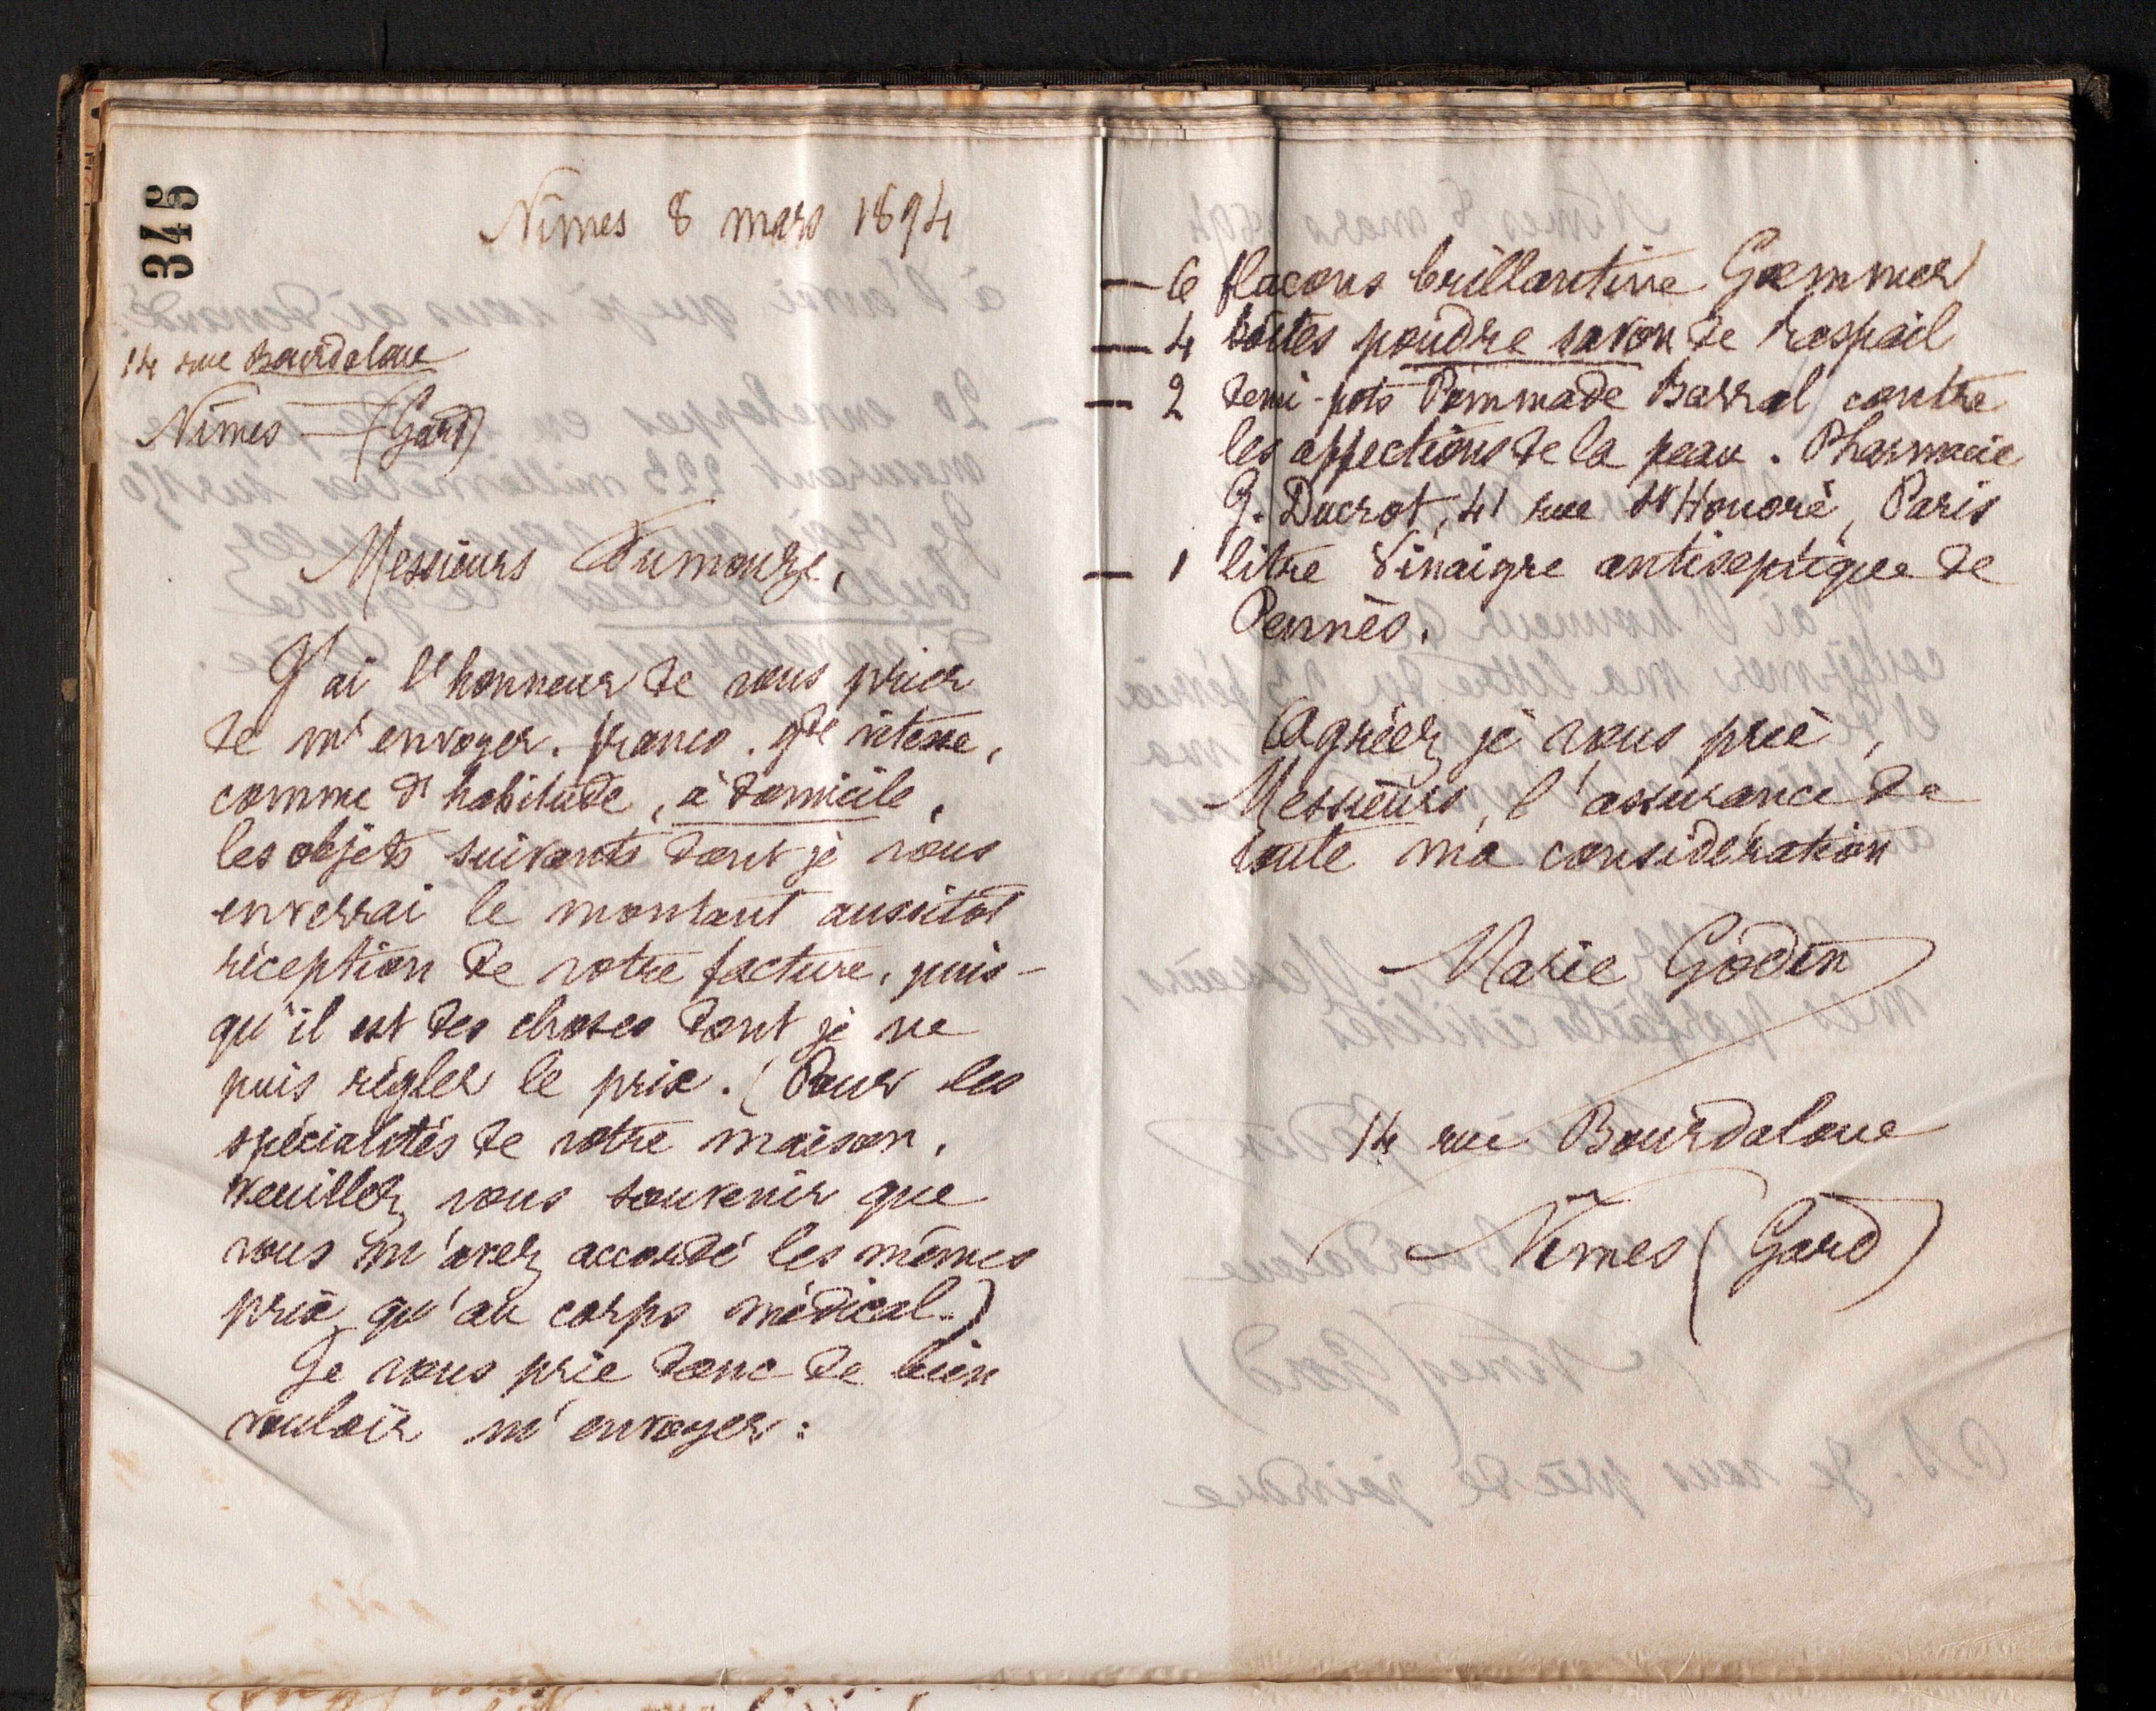 345
Nîmes 8 mars 1894
14 rue Bourdaloue
Nîmes — (Gard)
Messieurs Fumouze,
J'ai l'honneur de vous prier
de m'envoyer. franco. gde vitesse,
comme d'habitude, à domicile,
les objets suivants dont je vous
enverrai le montant aussitôt
réception de votre facture, puis-
qu'il est des choses dont je ne
puis régler le prix. (Pour les
spécialités de votre maison,
veuillez vous souvenir que
vous m'avez accordé les mêmes
prix qu'au corps médical.)
Je vous prie donc de bien
vouloir m'envoyer:
— 6 flacons brillantine
— 4 boîtes poudre savon de Raspail
— 2 demi-pots Pommade Barral contre
les affections de la peau. Pharmacie
G. Ducrot, 41 rue St Honoré, Paris
— 1 litre Vinaigre antiseptique de
Pennès.
Agréez je vous prie,
Messieurs, l'assurance de
toute ma considération
Marie Godin
14 rue Bourdaloue
Nîmes (Gard)